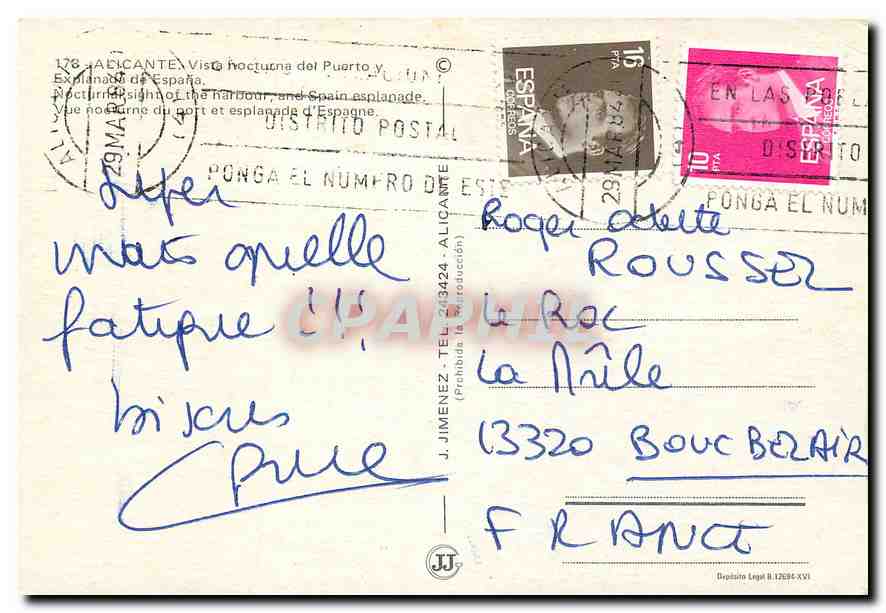 178 - ALICANTE. Vista nocturna del Puerto y
Explanada de España.
Nocturne sight of the harbour, and Spain esplanade.
Vue nocturne du port et esplanade d'Espagne.
©
29 MAR 84
DISTRITO POSTAL
PONGA EL NUMERO DE ESTE
16 PTA
ESPAÑA
CORREOS
29 MAR 84
10 PTA
ESPAÑA
CORREOS
EN LAS POBLA
DISTRITO
PONGA EL NUM
Super
mais quelle
fatigue !!!
bises
J. JIMENEZ - TEL. 243424 - ALICANTE
(Prohibida la Reproducción)
Roger Odette
ROUSSEL
Le Roc
La Mûle
13320 BOUC BELAIR
FRANCE
CPAPHIL
JJ
Depósito Legal B. 12694-XVI